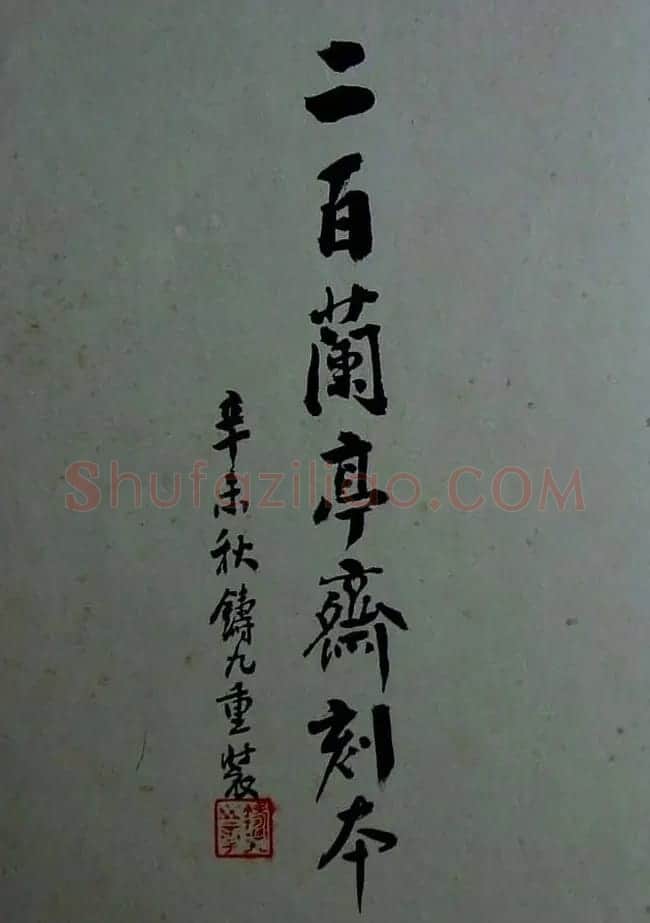 二百蘭亭齋刻本
辛未秋鑄九重裝
Shufaziliao.COM